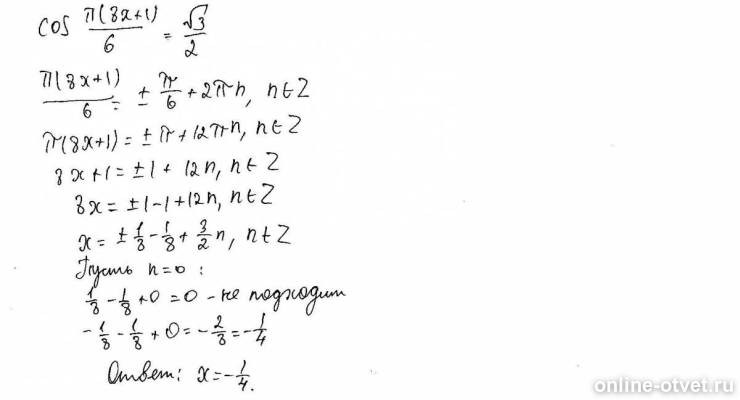 cos π(8x+1)/6 = √3/2
π(8x+1)/6 = ± π/6 + 2πn, n∈Z
π(8x+1) = ±π + 12πn, n∈Z
8x+1 = ±1 + 12n, n∈Z
8x = ±1 - 1 + 12n, n∈Z
x = ± 1/8 - 1/8 + 3/2 n, n∈Z
Пусть n=0 :
1/8 - 1/8 + 0 = 0 - не подходит
- 1/8 - 1/8 + 0 = - 2/8 = - 1/4
Ответ: x = - 1/4.
online-otvet.ru